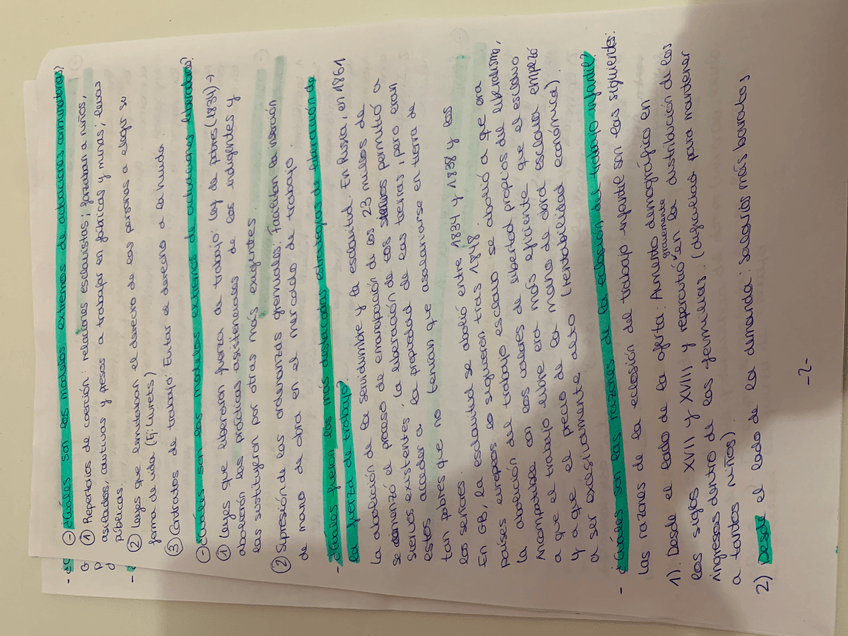 - ¿Cuáles son los módulos extremos de actuaciones conminatorias?
① Repertorios de coerción: relaciones esclavistas; forzaban a niños,
asilados, cautivos y presos a trabajar en fábricas y minas; levas
públicas
② Leyes que limitaban el derecho de las personas a elegir su
forma de vida (Ej: Kulaks)
③ Contratos de trabajo: Evitar el derecho a la huida
- ¿Cuáles son los módulos extremos de actuaciones liberadoras?
① Leyes que liberasen fuerza de trabajo: ley de pobres (1834) →
abolieran las prácticas asistenciales de los indigentes y
las sustituyeron por otras más exigentes
② Supresión de las ordenanzas gremiales. Facilitan la inserción
de mano de obra en el mercado de trabajo.
- ¿Cuáles fueron las más destacadas estrategias de liberación de
la fuerza de trabajo?
La abolición de la servidumbre y la esclavitud. En Rusia, en 1861
se comenzó el proceso de emancipación de los 23 millones de
siervos existentes. La liberación de los siervos permitió a
estos acceder a la propiedad de las tierras, pero eran
tan pobres que no tenían que asalariarse en tierra de
los señores
En GB, la esclavitud se abolió entre 1834 y 1838 y los
países europeos lo siguieron tras 1848.
La abolición del trabajo esclavo se abolió a que era
incompatible con los valores de libertad propios del liberalismo,
a que el trabajo libre era más eficiente que el esclavo
y a que el precio de la mano de obra esclava empezó
a ser excesivamente alto (rentabilidad económica).
- ¿Cuáles son las razones de la eclosión del trabajo infantil?
Las razones de la eclosión del trabajo infantil son las siguientes:
1). Desde el lado de la oferta: Aumento demográfico en
los siglos XVII y XVIII y repercutió gravemente en la distribución de los
ingresos dentro de las familias. (dificultad para mantener
a tantos niños)
2) Desde el lado de la demanda: Salarios más baratos,
-2-